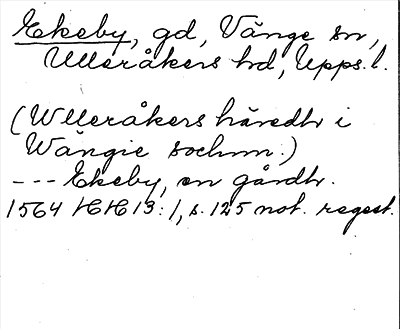 Ekeby, gd, Vänge sn,
Ulleråkers hd, Upps. l.
(Wlleråkers häredt i
Wängie sochnn:)
--- Ekeby, en gårdt.
1564 HH 13:1, s. 125 not. regest.